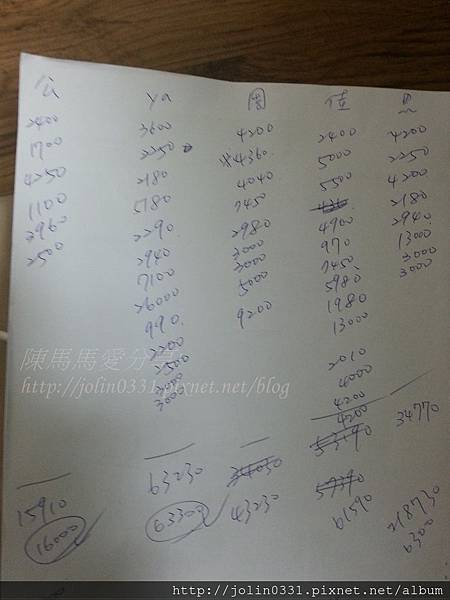 公
2400
1700
4250
1100
3960
2500
15910
16000
ya
3600
2250
2180
5180
2290
2940
7100
26000
990
2200
2500
3000
3000
63230
63300
4200
※4360
4040
7450
2980
3000
3000
5000
9200
34030
43230
佳
2400
5000
5500
436
4900
970
7450
5980
1980
13000
2010
4000
4200
4200
53190
57390
61590
4200
2250
4200
2180
2940
13000
3000
3000
34770
218730
6300
陳馬馬愛分享
http://jolin0331.pixnet.net/blog
http://jolin0331.pixnet.net/album